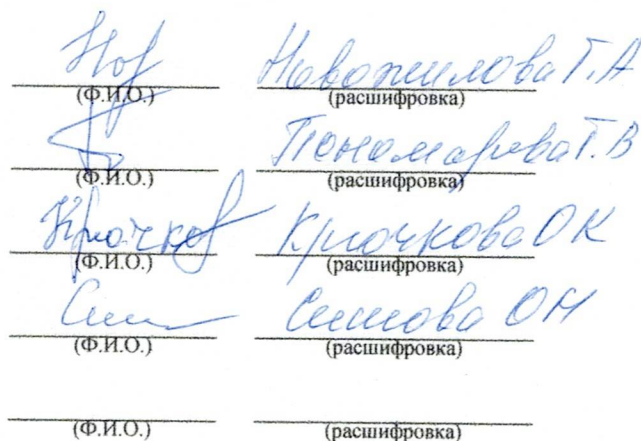 Нов Новожилова Т.А
(Ф.И.О.) (расшифровка)
Пономарева Т.В
(Ф.И.О.) (расшифровка)
Крючков Крючкова ОК
(Ф.И.О.) (расшифровка)
ОН
(Ф.И.О.) (расшифровка)
(Ф.И.О.) (расшифровка)